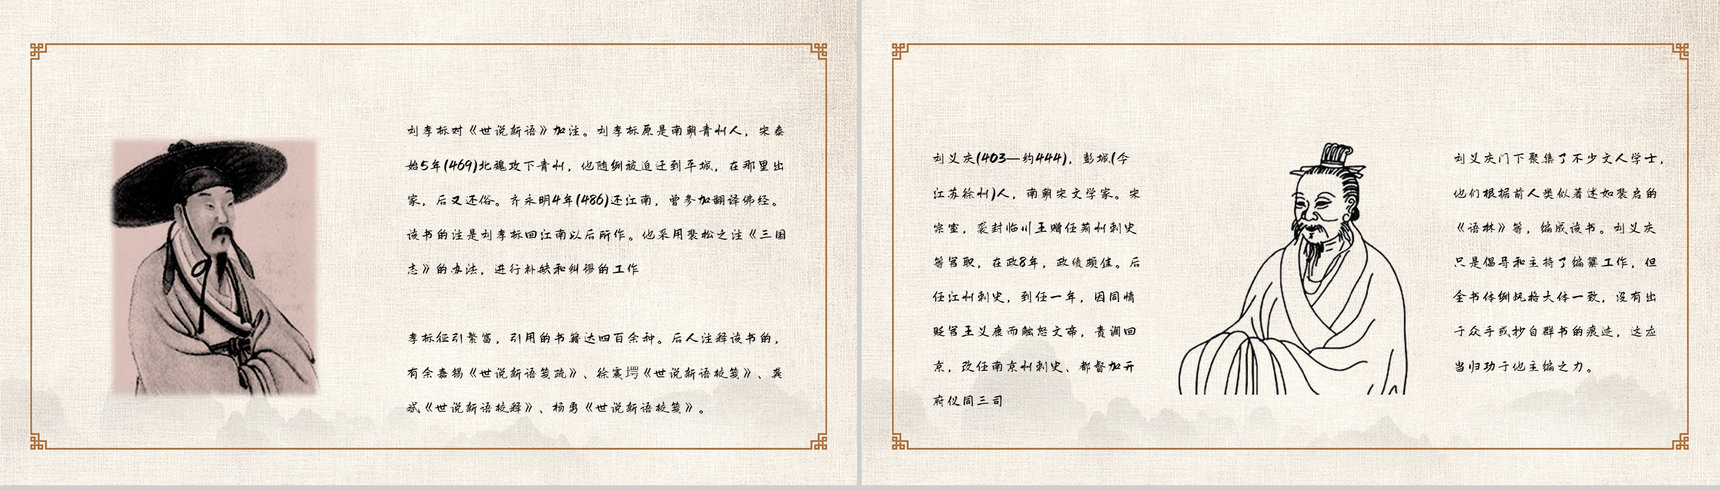 刘孝标对《世说新语》加注。刘孝标原是南朝青州人，宋泰
始5年(469)北魏攻下青州，他随绑被迫迁到平城，在那里出
家，后又还俗。齐永明4年(486)还江南，曾参加翻译佛经。
该书的注是刘孝标回江南以后所作。他采用裴松之注《三国
志》的办法，进行补缺和纠谬的工作
孝标征引繁富，引用的书籍达四百余种。后人注释该书的，
有余嘉锡《世说新语笺疏》、徐震堮《世说新语校笺》、龚
斌《世说新语校释》、杨勇《世说新语校笺》。
刘义庆(403—约444)，彭城(今
江苏徐州)人，南朝宋文学家。宋
宗室，袭封临川王赠任荆州刺史
等官职，在政8年，政绩颇佳。后
任江州刺史，到任一年，因同情
贬官王义康而触怒文帝，责调回
京，改任南京州刺史、都督加开
府仪同三司
刘义庆门下聚集了不少文人学士，
他们根据前人类似著述如裴启的
《语林》等，编成该书。刘义庆
只是倡导和主持了编纂工作，但
全书体例风格大体一致，没有出
于众手或抄自群书的痕迹，这应
当归功于他主编之力。